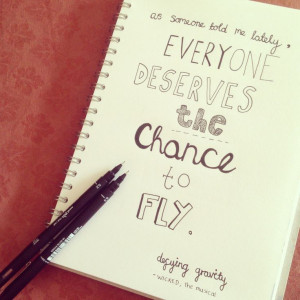 as someone told me lately,
EVERYONE
DESERVES
the
Chance
to
FLY.
defying gravity
- WICKED, the musical